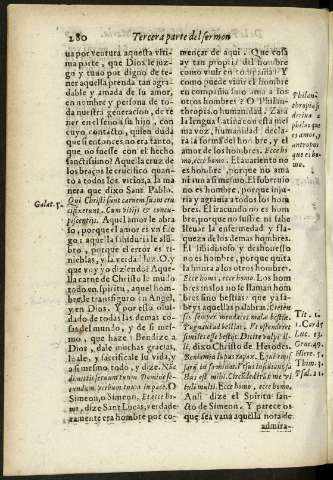 280 Tercera parte del sermon
ua por ventura aquesta vlti-
ma parte, que Dios le juz-
gò y tuuo por digno de te-
ner aquella prenda tan agra-
dable y amada de su amor,
en nombre y persona de to-
da nuestra generacion, de te-
ner en el seno a su hijo, con
cuyo contacto, quien duda
que si entonces no era tanto,
que no fuesse con el hecho
sanctissimo? Aquella cruz de
los braços le crucificò quan-
to a todos los vicios, a la ma-
nera que dixo Sant Pablo.
Qui Christi sunt carnem suam cru
cifixerunt. Cum vitijs & concu-
piscentijs. Aquel amor le abra
sò, porque el amor es vn fue
go: aquella sabiduria le alũ-
brò, porque el error es ti-
nieblas, y la verdad luz. O, y
que voy yo diziendo? Aque-
lla carne de Christo le mudò
todo en spiritu, aquel hom-
bre le transfigurò en Angel,
y en Dios. Y por esta olui-
dado de todas las demas co-
sas del mundo, y de si mes-
mo, que haze? Bendize a
Dios, dale muchas gracias,
loale, y sacrificale su vida, y
a si mesmo, todo, y dize. Nũc
dimittis seruum tuum Domine se-
cundum verbum tuum in pace. O
Simeon, o Simeon. Et ecce ho-
mo, dize Sant Lucas, verdade-
ramente era hombre por co-
Galat. 5.
mençar de aqui. Que cosa
ay tan propria del hombre
como viuir en compañia? Y
como puede viuir el hombre
en compañia sino ama a los
otros hombres? O Philan-
thropiòs, o humanidad. Zaña
la lengua Latina con esta mel
ma voz, humanidad decla-
ra la forma del hombre, y el
amor de los hombres. Ecce ho
mo, ecce homo. El auariento no
es hombre, porque no ama
ni aun a si mesmo. El soberuio
no es hombre, porque inju-
ria y agrauia a todos los hom
bres. El iracundo no es hom
bre, porque no sufre ni sabe
lleuar la enfermedad y fla-
queza de los demas hombres.
El libidinoso y deshonesto
no es hombre, porque quita
la honra a los otros hombres.
Ecce homo, ecce homo. Los hom
bres malos no se llaman hom
bres sino bestias: que ya sa-
breys aquellas palabras. Creten-
ses semper mendaces malæ bestiæ.
Pugnaui ad bestias. Ne offenderet
similes esse bestijs. Dicite vulpi il-
li, dixo Christo de Herodes.
Beniamin lupus rapax. Equi emis-
sarij in fœminas. Visus insaniens sa
Bas est mihi. Circundederunt me vi
tuli multi. Ecce homo, ecce homo,
Ansi dize el Spiritu san-
cto de Simeon. Y parece os
que sea vana aquella nota de
admira-
Philan-
thropiòs se
deriua a
philos que
es amor, y
antropos
que es ho-
mo.
Tit. 1.
1. Cor. 15
Luc. 13.
Gen. 49.
Hiere. 5.
Thim. 3.
Psal. 21.